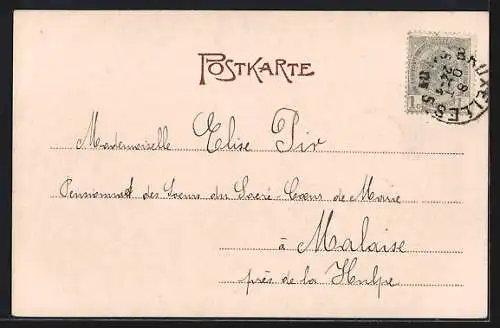 POSTKARTE
BRUXELLES
1c
Mademoiselle Elise Pir
Pensionnat des Soeurs du Sacré-Coeur de Marie
à Malaise
près de la Hulpe